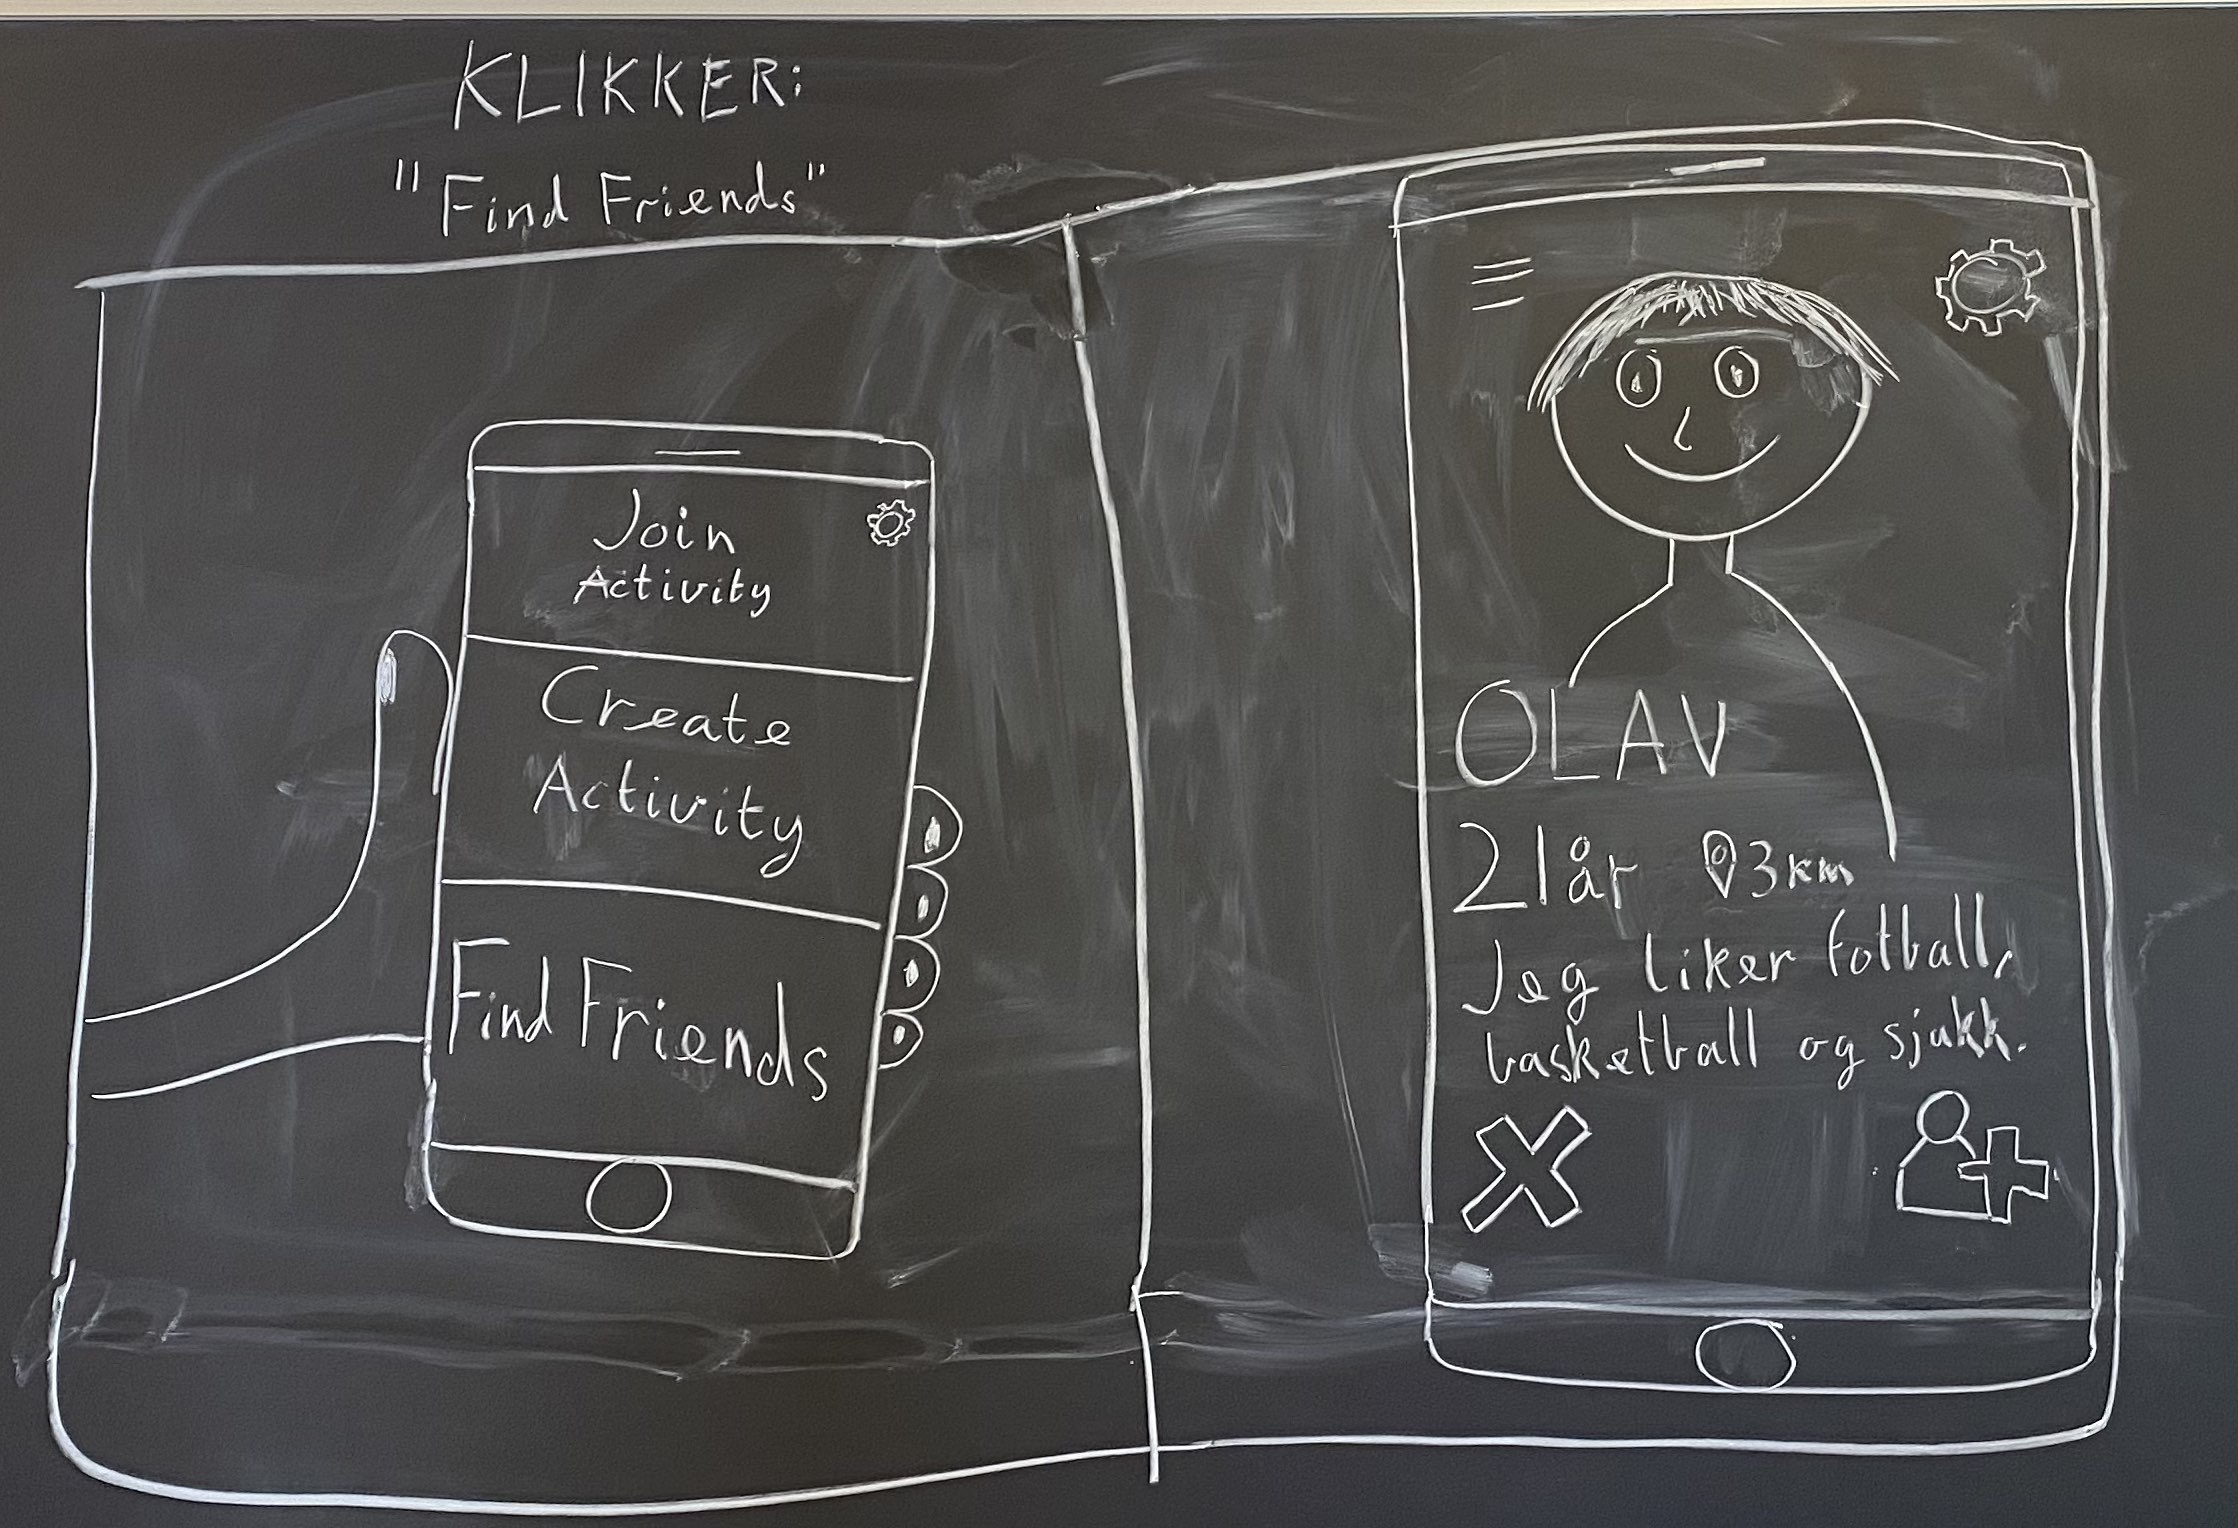 KLIKKER:
"Find Friends"
Join
Activity
Create
Activity
Find Friends
OLAV
21 år 3km
Jeg liker fotball,
basketball og sjakk.